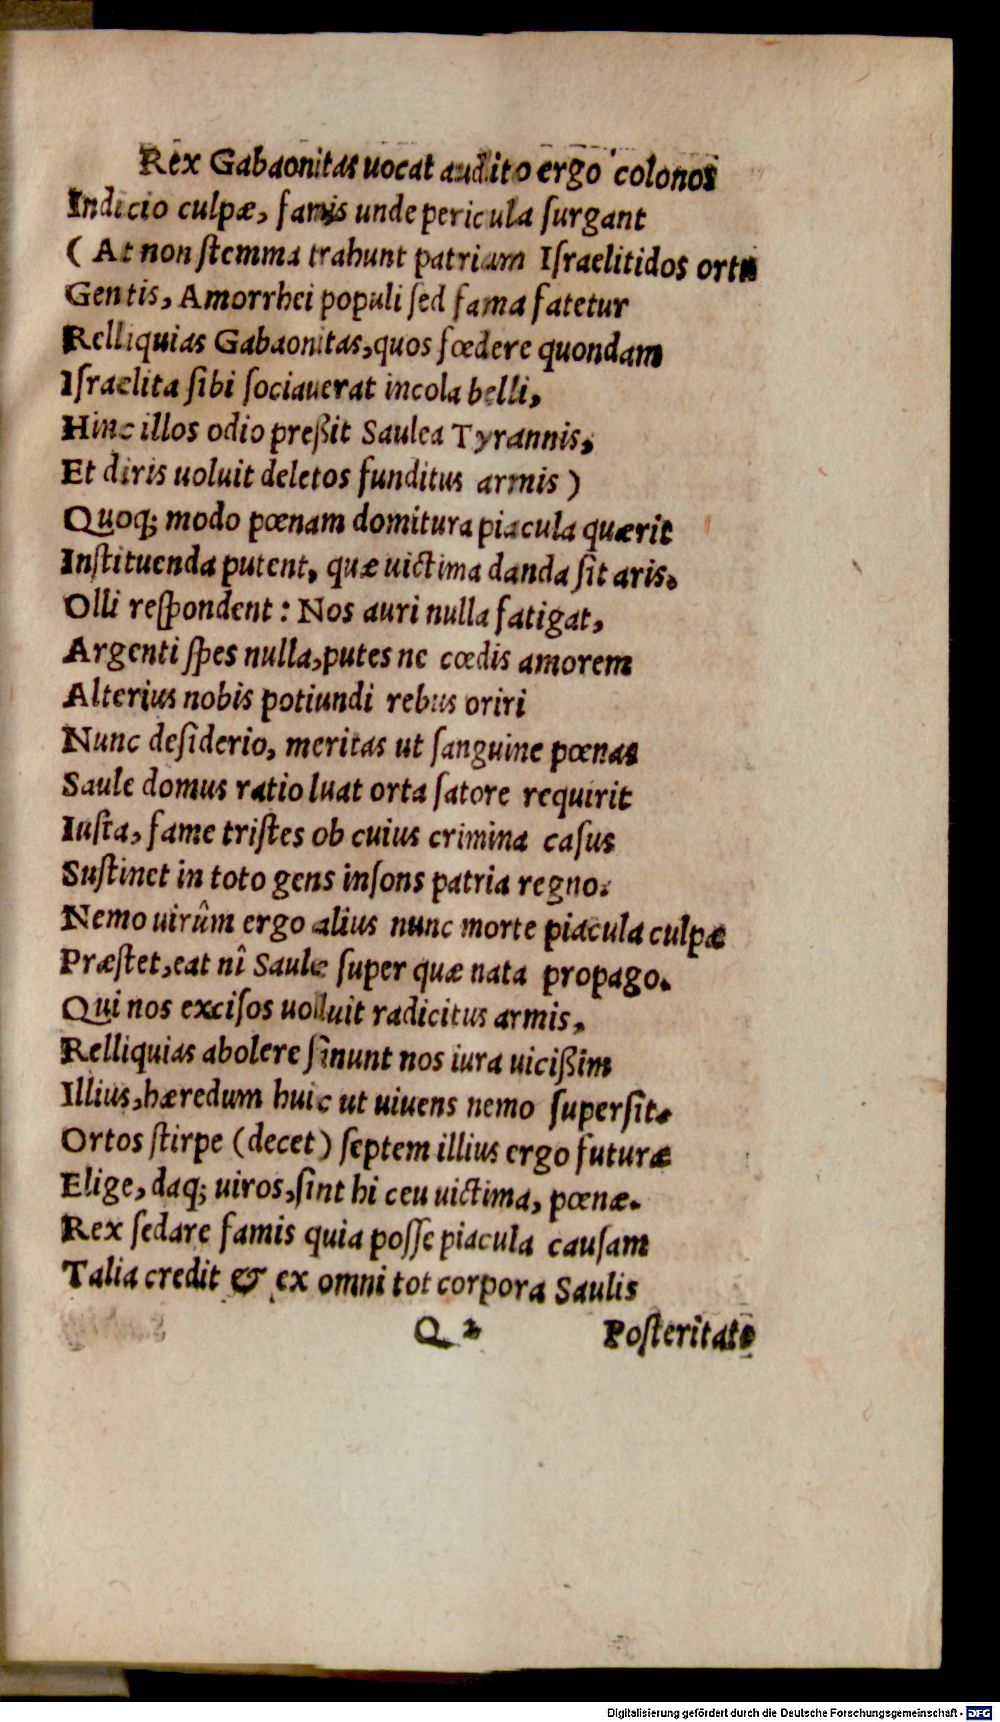 Rex Gabaonitas uocat audito ergo colonos
Indicio culpæ, famis unde pericula ſurgant
( At non ſtemma trahunt patriam Iſraelitidos ortu
Gentis, Amorrhei populi ſed fama fatetur
Relliquias Gabaonitas, quos fœdere quondam
Iſraelita ſibi ſociauerat incola belli,
Hinc illos odio preßit Saulea Tyrannis,
Et diris uoluit deletos funditus armis )
Quoq; modo pœnam domitura piacula quærit
Inſtituenda putent, quæ uictima danda ſit aris.
Olli reſpondent : Nos auri nulla fatigat,
Argenti ſpes nulla, putes ne cœdis amorem
Alterius nobis potiundi rebus oriri
Nunc deſiderio, meritas ut ſanguine pœnas
Saule domus ratio luat orta ſatore requirit
Iuſta, fame triſtes ob cuius crimina caſus
Suſtinet in toto gens inſons patria regno.
Nemo uirûm ergo alius nunc morte piacula culpæ
Præſtet, eat nî Saule ſuper quæ nata propago.
Qui nos exciſos uoluit radicitus armis,
Relliquias abolere ſinunt nos iura uicißim
Illius, hæredum huic ut uiuens nemo ſuperſit.
Ortos ſtirpe (decet) ſeptem illius ergo futuræ
Elige, daq; uiros, ſint hi ceu uictima, pœnæ.
Rex ſedare famis quia poſſe piacula cauſam
Talia credit & ex omni tot corpora Saulis
Q 2 Poſteritate
Digitalisierung gefördert durch die Deutsche Forschungsgemeinschaft - DFG